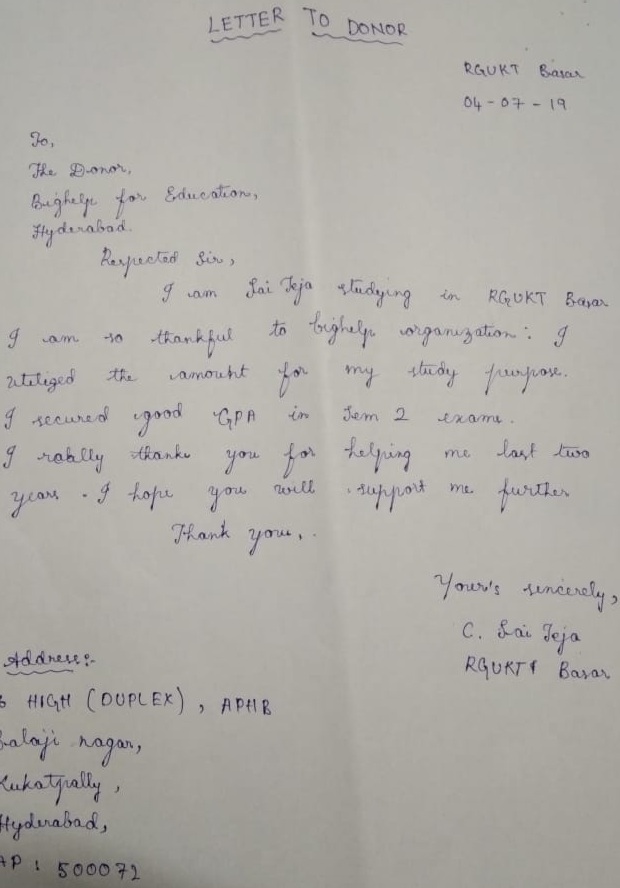 LETTER TO DONOR
RGUKT Basar
04-07-19
To,
The Donor,
Bighelp for Education,
Hyderabad.
Respected Sir,
I am Sai Teja studying in RGUKT Basar
I am so thankful to bighelp organization. I
utilized the amount for my study purpose.
I secured good GPA in Sem 2 exams.
I really thanks you for helping me last two
years. I hope you will support me further
Thank you..
Your's sincerely,
C. Sai Teja
RGUKT Basar
Address:-
HIGH (DUPLEX), APHB
Balaji nagar,
Kukatpally,
Hyderabad,
AP: 500072